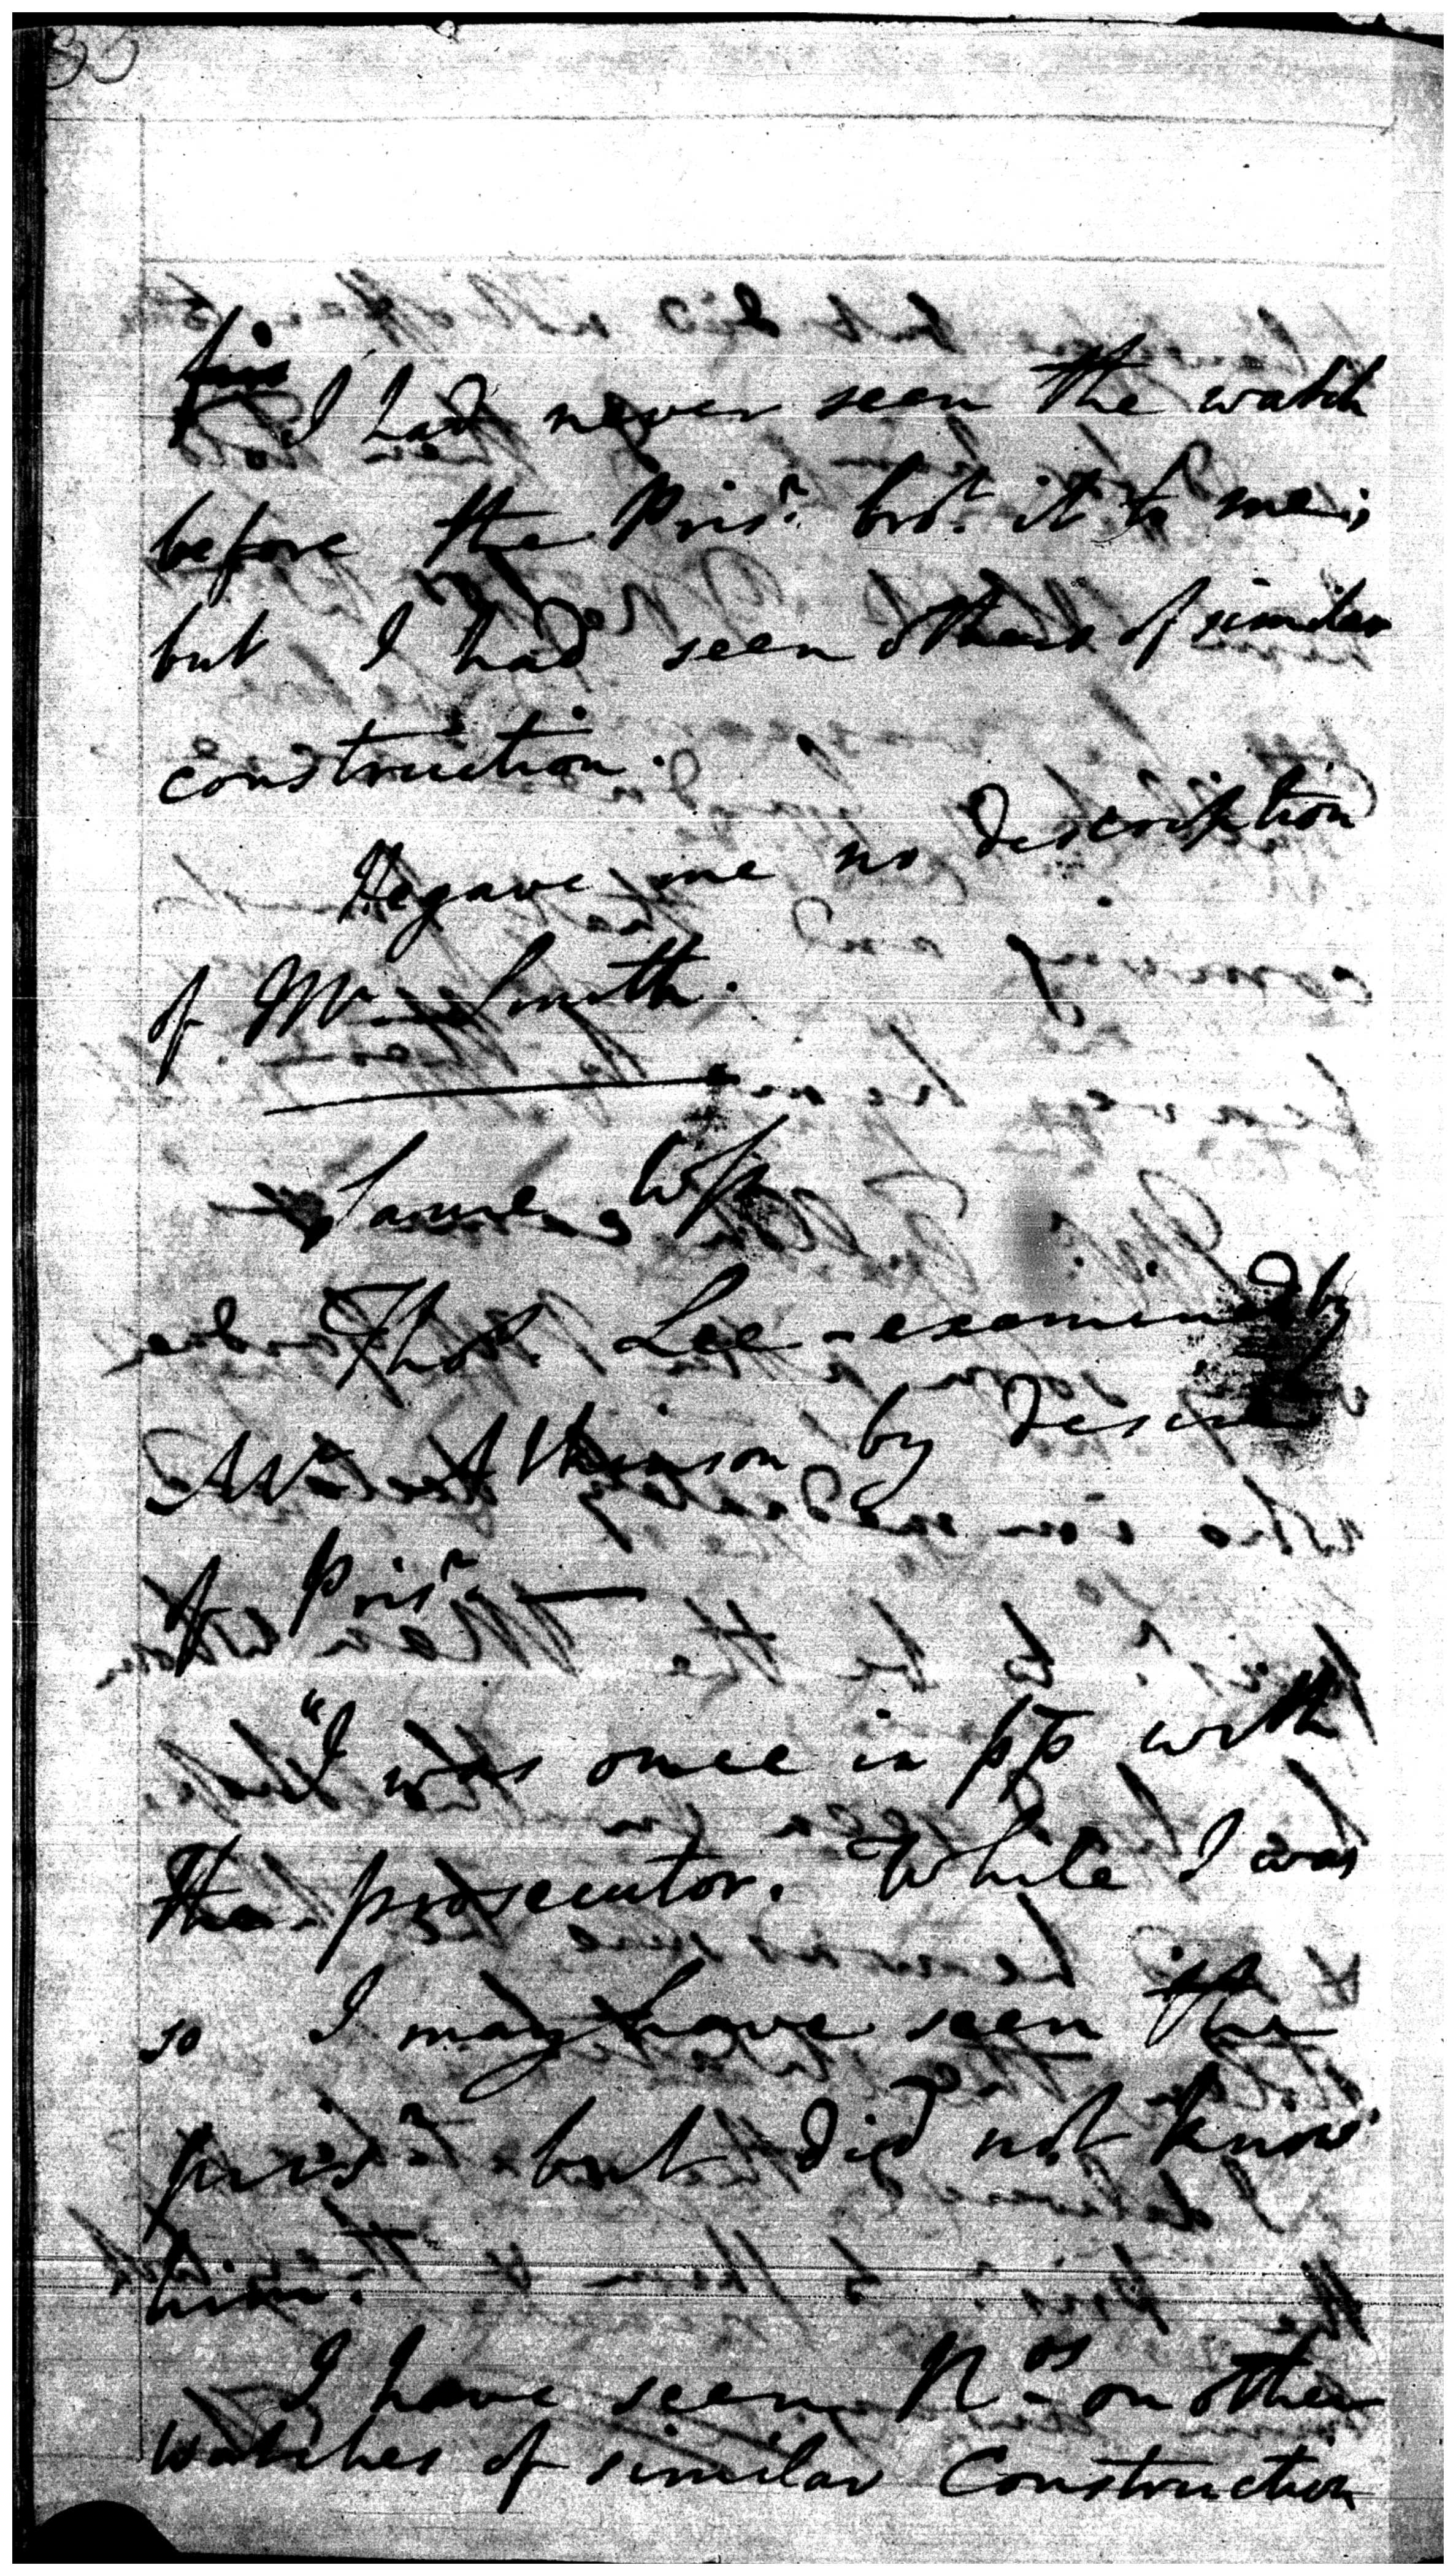 35
I had never seen the watch
before the Prisr. brot. it to me;
but I had seen others of similar
construction.
He gave me no description
of Mr Smith.
Same
Thos. Lee - examined by
Mr Atkinson by desire
of Prisr. —
"I was once in pp with
the prosecutor. While I was
so I may have seen the
prisr. but did not know
him.
I have seen Nos on other
watches of similar Construction